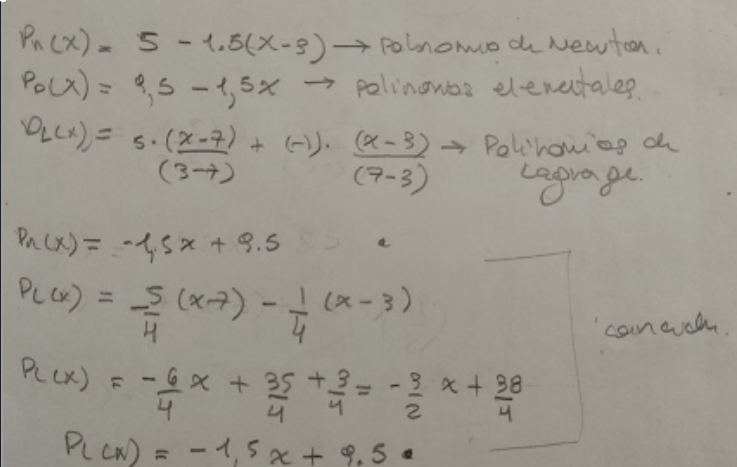 Pn(x) = 5 - 1.5(x-3) → Polinomio de Newton.
Po(x) = 9,5 - 1,5x → polinomios elementales.
PL(x) = 5·(x-7)/(3-7) + (-1)·(x-3)/(7-3) → Polinomios de Lagrange.
Pn(x) = -1,5x + 9.5
PL(x) = -5/4 (x-7) - 1/4 (x-3)
PL(x) = -6/4 x + 35/4 + 3/4 = -3/2 x + 38/4
PL(x) = -1,5x + 9.5